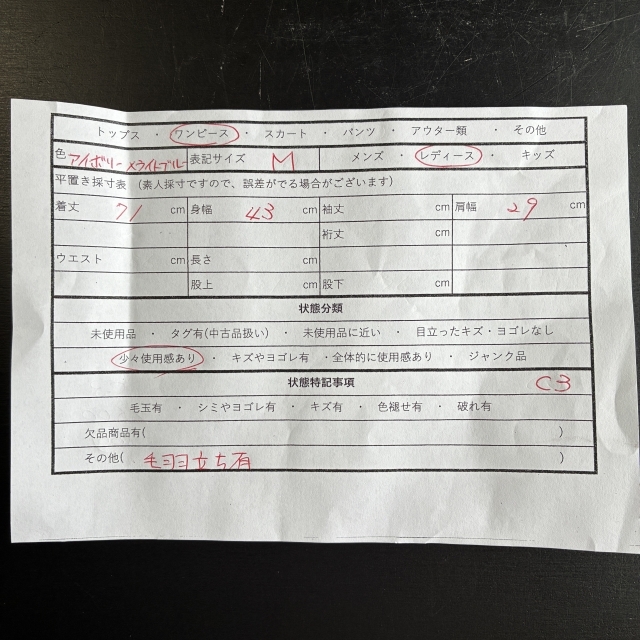 トップス ・ ワンピース ・ スカート ・ パンツ ・ アウター類 ・ その他
色 アイボリー×ライトブルー 表記サイズ M メンズ ・ レディース ・ キッズ
平置き採寸表 (素人採寸ですので、誤差がでる場合がございます)
着丈 71 cm 身幅 43 cm 袖丈 cm 肩幅 29 cm
裄丈 cm
ウエスト cm 長さ cm
股上 cm 股下 cm
状態分類
未使用品 ・ タグ有(中古品扱い) ・ 未使用品に近い ・ 目立ったキズ・ヨゴレなし
少々使用感あり ・ キズやヨゴレ有 ・全体的に使用感あり ・ ジャンク品
状態特記事項 C3
毛玉有 ・ シミやヨゴレ有 ・ キズ有 ・ 色褪せ有 ・ 破れ有
欠品商品有( )
その他( 毛羽立ち有 )